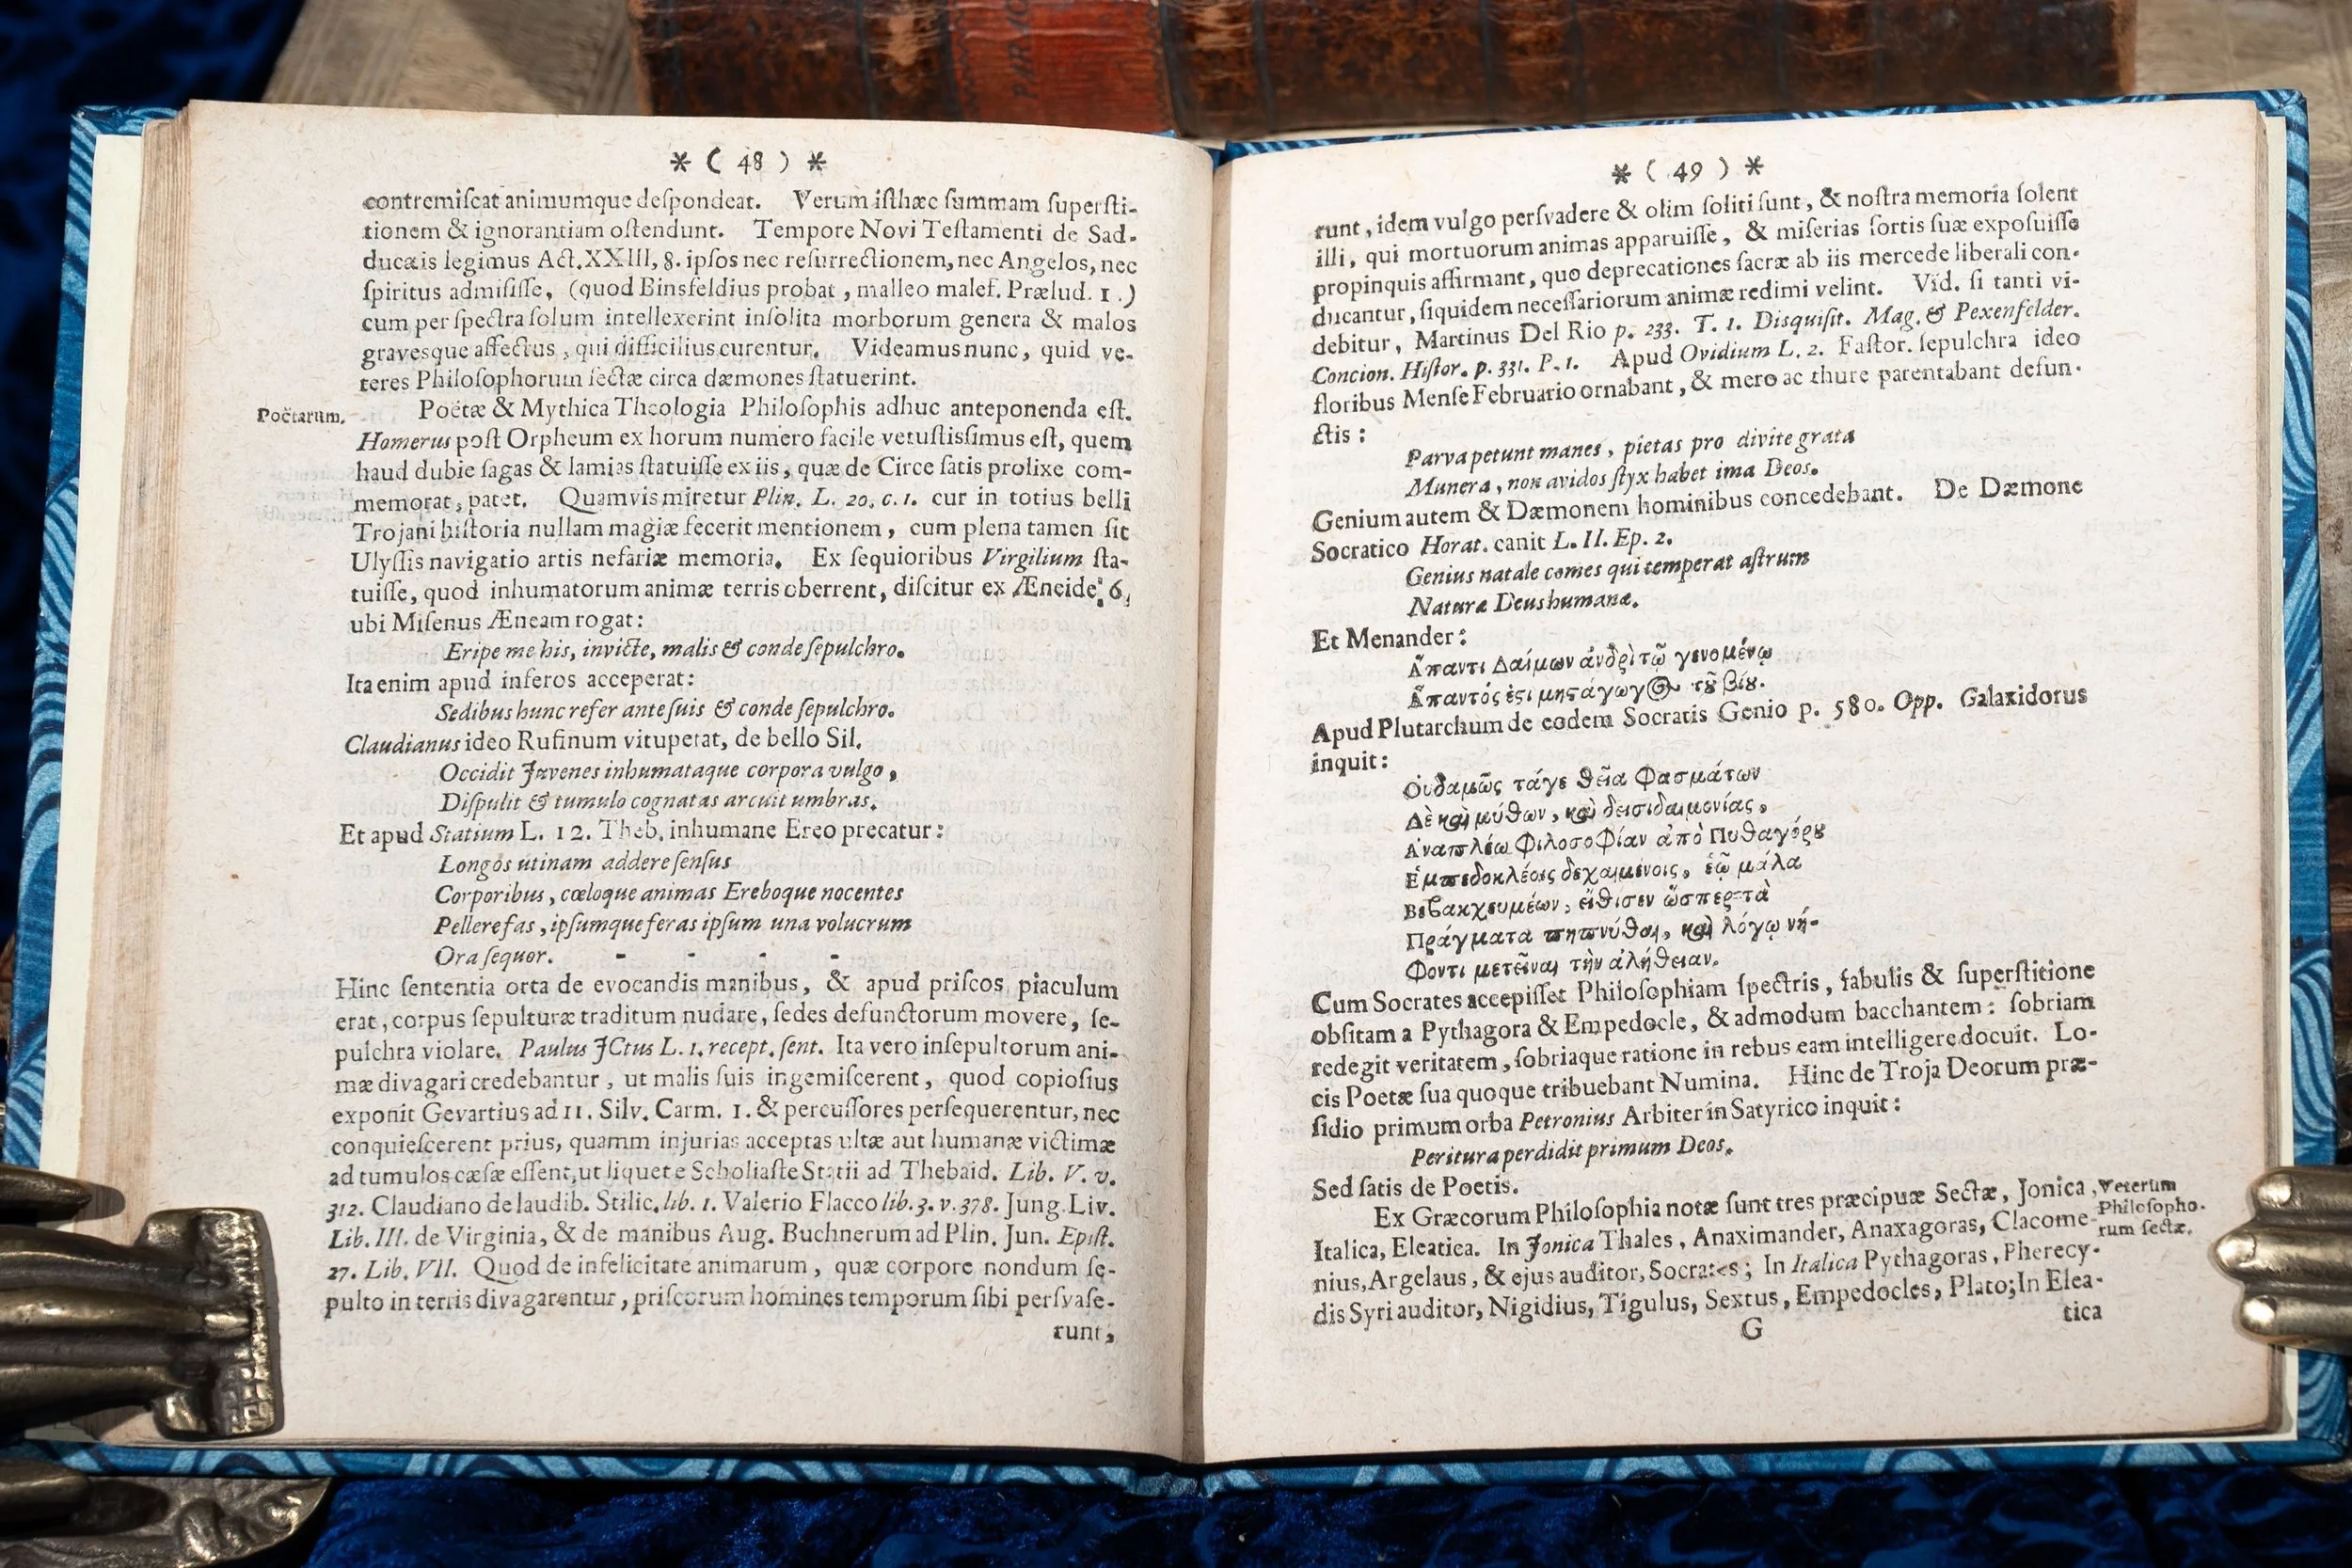 * ( 48 ) *
contremiſcat animumque deſpondeat. Verum iſthæc ſummam ſuperſti-
tionem & ignorantiam oſtendunt. Tempore Novi Teſtamenti de Sad-
ducæis legimus Act. XXIII, 8. ipſos nec reſurrectionem, nec Angelos, nec
ſpiritus admiſiſſe, (quod Binsfeldius probat, malleo malef. Prælud. 1.)
cum per ſpectra ſolum intellexerint inſolita morborum genera & malos
graveſque affectus, qui difficilius curentur. Videamus nunc, quid ve-
teres Philoſophorum ſectæ circa dæmones ſtatuerint.
Poëtarum.
Poëtæ & Mythica Theologia Philoſophis adhuc anteponenda eſt.
Homerus poſt Orpheum ex horum numero facile vetuſtiſſimus eſt, quem
haud dubie ſagas & lamias ſtatuiſſe ex iis, quæ de Circe ſatis prolixe com-
memorat, patet. Quamvis miretur Plin. L. 20. c. 1. cur in totius belli
Trojani hiſtoria nullam magiæ fecerit mentionem, cum plena tamen ſit
Ulyſſis navigatio artis nefariæ memoria. Ex ſequioribus Virgilium ſta-
tuiſſe, quod inhumatorum animæ terris oberrent, diſcitur ex Æneide. 6,
ubi Miſenus Æneam rogat:
Eripe me his, invicte, malis & conde ſepulchro.
Ita enim apud inferos acceperat:
Sedibus hunc refer ante ſuis & conde ſepulchro.
Claudianus ideo Rufinum vituperat, de bello Sil.
Occidit Juvenes inhumataque corpora vulgo,
Diſpulit & tumulo cognatas arcuit umbras.
Et apud Statium L. 12. Theb. inhumane Ereo precatur:
Longos utinam addere ſenſus
Corporibus, cœloque animas Ereboque nocentes
Pellere fas, ipſumque feras ipſum una volucrum
Ora ſequor. - - - -
Hinc ſententia orta de evocandis manibus, & apud priſcos piaculum
erat, corpus ſepulturæ traditum nudare, ſedes defunctorum movere, ſe-
pulchra violare. Paulus JCtus L. 1. recept. ſent. Ita vero inſepultorum ani-
mæ divagari credebantur, ut malis ſuis ingemiſcerent, quod copioſius
exponit Gevartius ad 11. Silv. Carm. 1. & percuſſores perſequerentur, nec
conquieſcerent prius, quamm injurias acceptas ultæ aut humanæ victimæ
ad tumulos cæſæ eſſent, ut liquet e Scholiaſte Statii ad Thebaid. Lib. V. v.
312. Claudiano de laudib. Stilic. lib. 1. Valerio Flacco lib. 3. v. 378. Jung. Liv.
Lib. III. de Virginia, & de manibus Aug. Buchnerum ad Plin. Jun. Epiſt.
27. Lib. VII. Quod de infelicitate animarum, quæ corpore nondum ſe-
pulto in terris divagarentur, priſcorum homines temporum ſibi perſvaſe-
runt,
* ( 49 ) *
runt, idem vulgo perſvadere & olim ſoliti ſunt, & noſtra memoria ſolent
illi, qui mortuorum animas apparuiſſe, & miſerias ſortis ſuæ expoſuiſſe
propinquis affirmant, quo deprecationes ſacræ ab iis mercede liberali con-
ducantur, ſiquidem neceſſariorum animæ redimi velint. Vid. ſi tanti vi-
debitur, Martinus Del Rio p. 233. T. 1. Disquiſit. Mag. & Pexenfelder.
Concion. Hiſtor. p. 331. P. 1. Apud Ovidium L. 2. Faſtor. ſepulchra ideo
floribus Menſe Februario ornabant, & mero ac thure parentabant defun-
ctis:
Parva petunt manes, pietas pro divite grata
Munera, non avidos ſtyx habet ima Deos.
Genium autem & Dæmonem hominibus concedebant. De Dæmone
Socratico Horat. canit L. II. Ep. 2.
Genius natale comes qui temperat aſtrum
Naturæ Deus humanæ.
Et Menander:
Ἅπαντι Δαίμων ἀνδρὶ τῷ γενομένῳ
Ἅπαντός ἐϛι μηϛάγωγ@ τȣ͂ βίȣ.
Apud Plutarchum de eodem Socratis Genio p. 580. Opp. Galaxidorus
inquit:
Οὐδαμῶς τάγε θεῖα Φασμάτων
Δὲ καὶ μύθων, καὶ δεισιδαιμονίας,
Ἀναπλέω ΦιλοσοΦίαν ἀπὸ Πυθαγόρȣ
Ἐμπεδοκλέοις δεχαμένοις, ἐῷ μάλα
Βεβακχευμέων, εἴθισεν ὥσπερ τὰ
Πράγματα πηπνύθαι, καὶ λόγῳ νή-
Φοντι μετεῖναι τὴν ἀλήθειαν.
Cum Socrates accepiſſet Philoſophiam ſpectris, fabulis & ſuperſtitione
obſitam a Pythagora & Empedocle, & admodum bacchantem: ſobriam
redegit veritatem, ſobriaque ratione in rebus eam intelligere docuit. Lo-
cis Poetæ ſua quoque tribuebant Numina. Hinc de Troja Deorum præ-
ſidio primum orba Petronius Arbiter in Satyrico inquit:
Peritura perdidit primum Deos.
Sed ſatis de Poetis.
Ex Græcorum Philoſophia notæ ſunt tres præcipuæ Sectæ, Jonica,
Veterum
Philoſopho-
rum ſectæ.
Italica, Eleatica. In Jonica Thales, Anaximander, Anaxagoras, Clacome-
nius, Argelaus, & ejus auditor, Socrates; In Italica Pythagoras, Pherecy-
dis Syri auditor, Nigidius, Tigulus, Sextus, Empedocles, Plato; In Elea-
G
tica